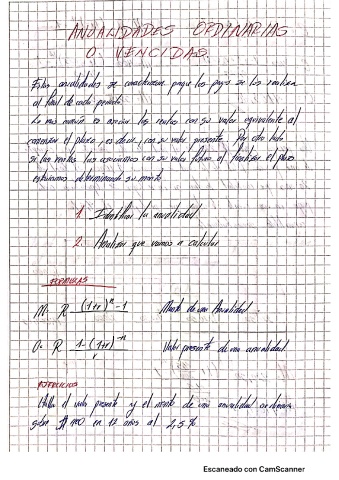 ANUALIDADES ORDINARIAS
O VENCIDAS.
Estas anualidades se caracterizan porque los pagos se los realiza
al final de cada periodo
Lo mas es asociar las rentas con su valor equivalente al
comenzar el plazo, es decir, con su valor presente. Por otro lado
si las rentas las asociamos con su valor futuro al finalizar el plazo
estaremos determinando su monto
1. Identificar la anualidad
2. Analizar que vamos a calcular
FORMULAS
M= R (1+r)^n - 1 Monto de una Anualidad
R 1-(1+r)^-n / r Valor presente de una anualidad.
EJERCICIOS
Halle el valor presente y el monto de una anualidad ordinaria
en 12 años al 2,5%
Escaneado con CamScanner